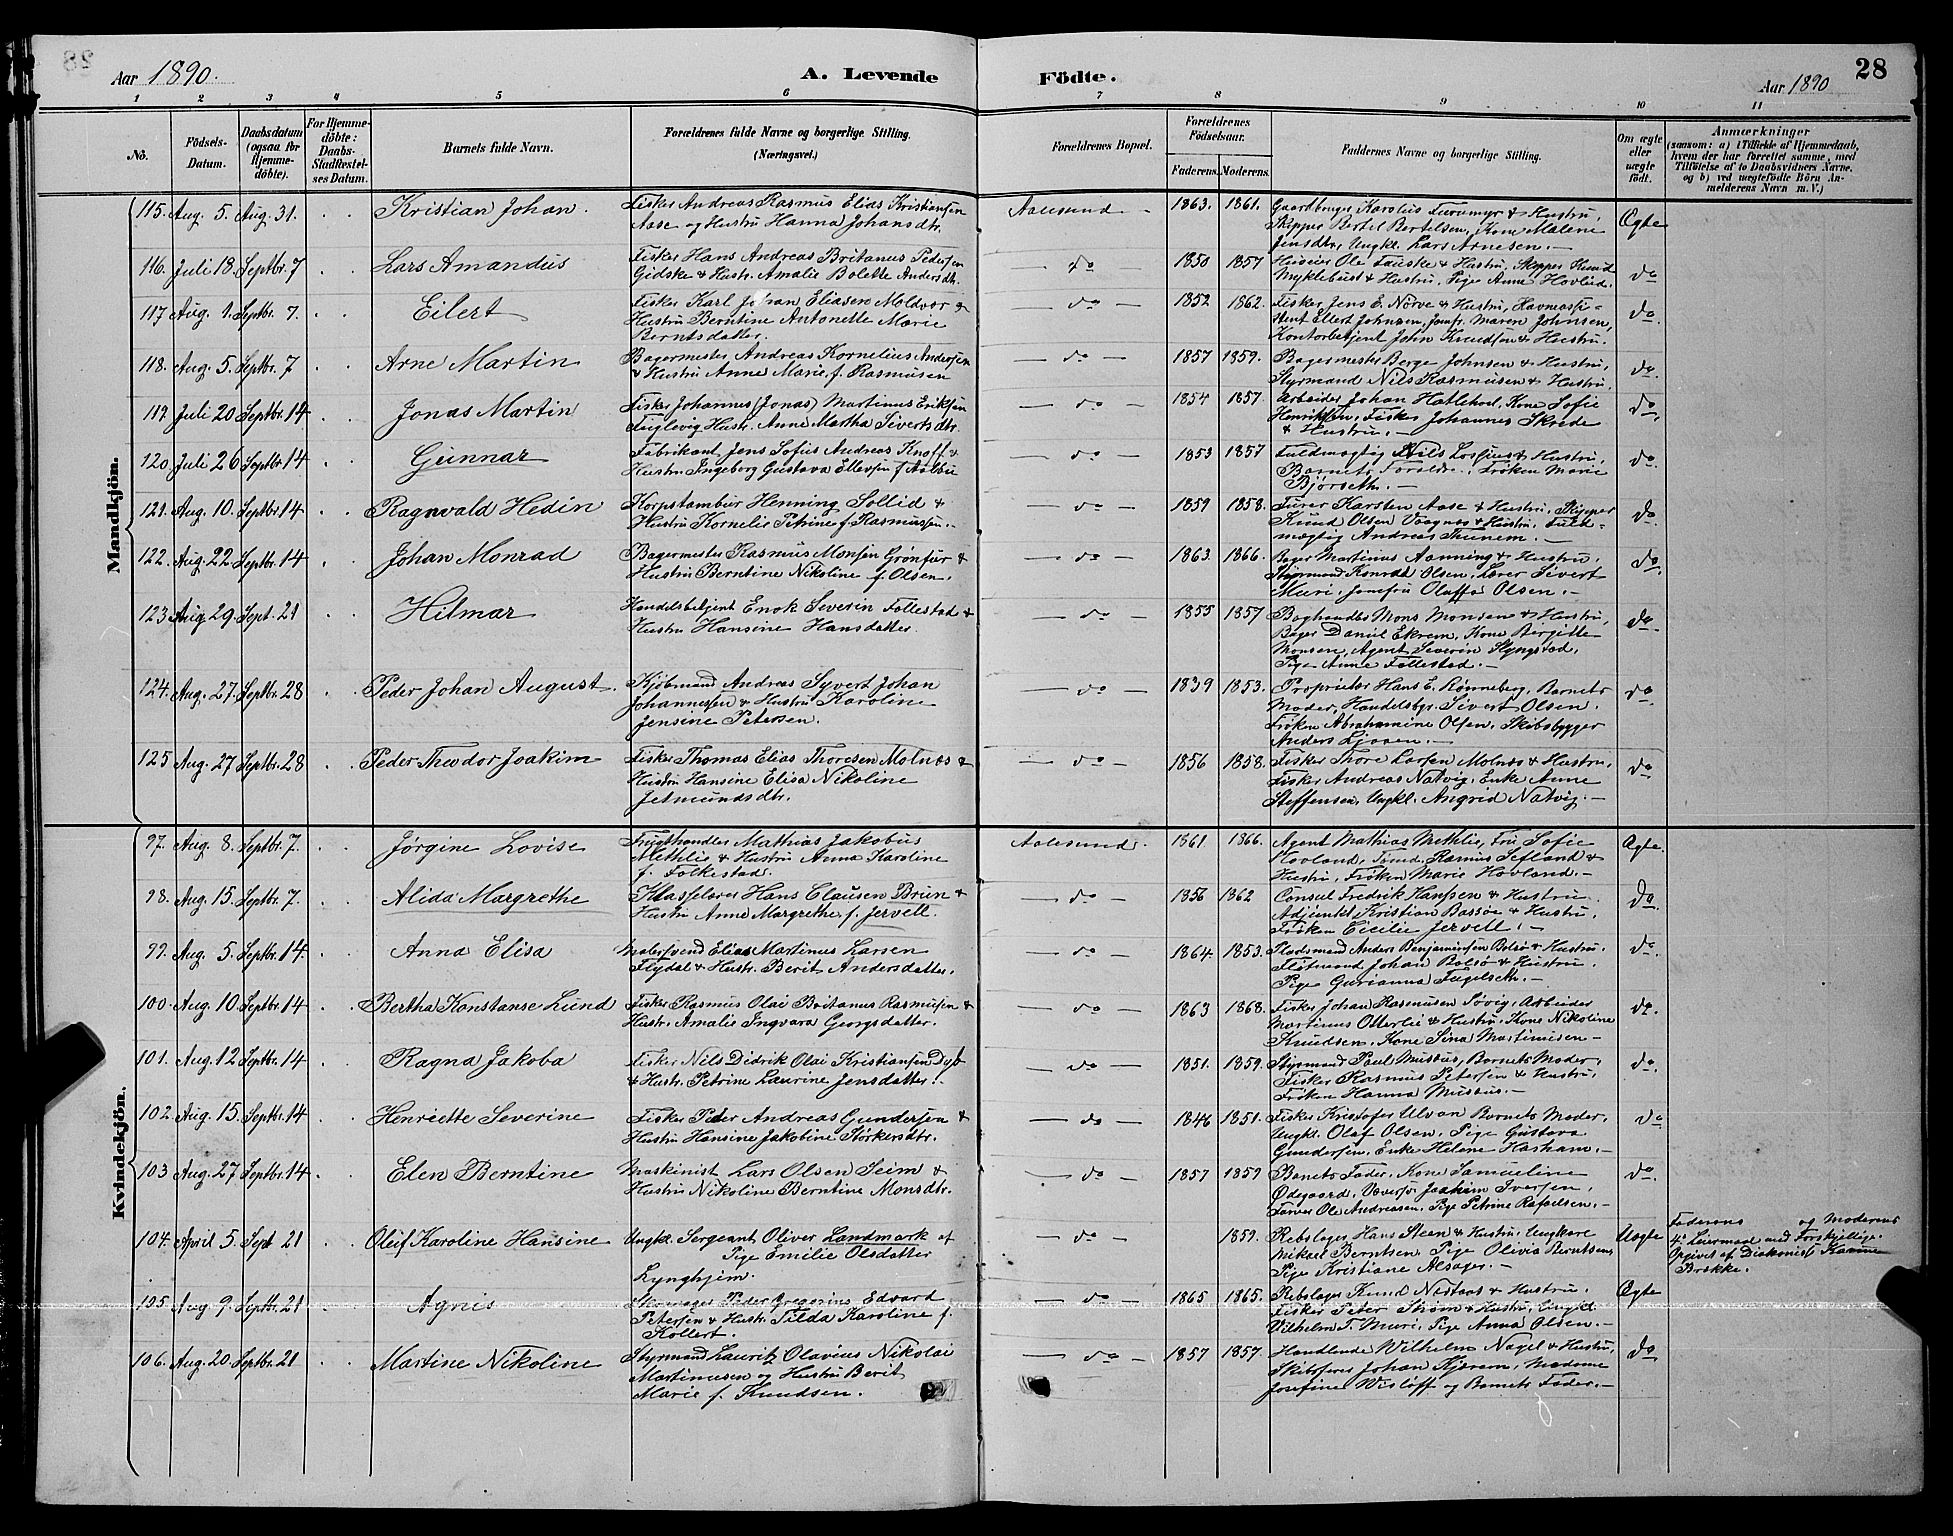 28
Aar 1890.
A. Levende Födte.
Aar 1890
1 2 3 4 5 6 7 8 9 10 11
No.
Födsels-Datum.
Daabsdatum (ogsaa for Hjemme-döbte).
For Hjemme-döbte: Daabs-Stadfæstel-ses Datum.
Barnets fulde Navn.
Forældrenes fulde Navne og borgerlige Stilling. (Næringsvei.)
Forældrenes Bopæl.
Forældrenes Födselsaar.
Faderens. Moderens.
Faddernes Navne og borgerlige Stilling.
Om ægte eller uægte födt.
Anmærkninger
(saasom: a) i Tilfælde af Hjemmedaab, hvem der har forrettet samme, med Tilföielse af to Daabsvidners Navne, og b) ved uægtefödte Börn Anmelderens Navn m. V.)
Mandkjön.
115. Aug. 5. Aug. 31. Kristian Johan.
Fisker Andreas Rasmus Elias Kristiansen
Aase og Hustru Hanna Johansdtr.
Aalesund — 1863. 1861.
Gaardbruger Karolus Furumyr & Hustru,
Skipper Bertel Bertelsen, Kone Malene
Jensdtr, Ungkl. Lars Arnesen. —
Ægte
116. Juli 18. Septbr. 7 Lars Amandus
Fisker Hans Andreas Britanus Pedersen
Gidske & Hustr. Amalie Bolette Andersdtr.
— do — 1850 1857
Huseier Ole Fauske & Hustru, Skipper Knud
Myklebust & Hustru, Pige Anne Hovlid.
do
117 Aug. 1. Septbr. 7. Eilert
Fisker Karl Johan Eliasen Moldvær &
Hustru Berntine Antonette Marie
Berntsdatter.
— do — 1852 1862.
Fisker Jens E. Nörve & Hustru, Havnassi-
stent Ellert Johnsen, Jomfr. Maren Johnsen,
Kontorbetjent John Knudsen & Hustru.
do.
118. Aug. 5. Septbr. 7 Arne Martin
Bagermester Andreas Kornelius Andersen
& Hustru Anne Marie f. Rasmusen
— do — 1857 1859.
Bagermester Berge Johnsen & Hustru,
Styrmand Nils Rasmussen & Hustru.
do.
119. Juli 20 Septbr. 14 Jonas Martin
Fisker Johannes (Jonas) Martinus Eriksen
Fuglevig Hustr. Anne Martha Sivertsdtr.
— do — 1854 1857.
Arbeider Johan Hatlehol, Kone Sofie
Henriksen, Fisker Johannes Skrede
& Hustru. —
do.
120. Juli 26 Septbr. 14 Gunnar
Fabrikant Jens Sofus Andreas Knoff &
Hustru Ingeborg Gustava Ellevsen f. Aalbu
— do — 1853 1857
Fuldmægtig Nils Lossius & Hustru,
Barnets Foreldre, Fröken Marie
Bjørseth. —
do.
121. Aug. 10. Septbr. 14 Ragnvald Hedin
Korpstambur Henning Sollid &
Hustru Kornelie Petrine f. Rasmussen.
— do — 1859 1858.
Furer Karsten Aase & Hustru, Skipper
Knud Olsen Vaagnes & Hustru, Fuld-
mægtig Andreas Thunem. —
do.
122. Aug. 22. Septbr. 14 Johan Monrad
Bagermester Rasmus Monsen Grönfur &
Hustru Berntine Nikoline f. Olsen.
— do — 1863. 1866.
Bager Martinus Aanning & Hustru,
Styrmand Konrad Olsen, Lærer Sivert
Muri, Jomfru Oluffa Olsen. —
do.
123 Aug. 29. Sept. 21 Hilmar
Handelsbetjent Enok Severin Follestad &
Hustru Hansine Hansdatter.
— do — 1855 1857
Boghandler Mons Monsen & Hustru,
Bager Daniel Ekrem, Kone Bergitte
Monsen, Agent Severin Slyngstad,
Pige Anne Follestad. —
do.
124. Aug. 27. Septbr. 28 Peder Johan August.
Kjöbmand Andreas Syvert Johan
Johannessen & Hustru Karoline
Jensine Petersen.
— do — 1839 1853.
Proprietær Hans E. Rönneberg, Barnets
Moder, Handelsbgr. Sivert Olsen,
Fröken Abrahamine Olsen, Skibsbygger
Anders Ljoaen. —
do
125 Aug. 27 Septbr. 28 Peder Theodor Joakim
Fisker Thomas Elias Thoresen Molnes &
Hustru Hansine Elisa Nikoline
Jetmundsdtr.
— do — 1856 1858.
Fisker Thore Larsen Molnæs & Hustru,
Fisker Andreas Natvig, Enke Anne
Steffensen, Ungkl. Angrid Natvig. —
do
Kvindekjön.
97. Aug. 8. Septbr. 7. Jørgine Lovise
Frugthandler Mathias Jakobus
Methlie & Hustru Anna Karoline
f. Folkestad.
Aalesund. 1861. 1866.
Agent Mathias Methlie, Fru Sofie
Hovland, Tømd. Rasmus Sefland &
Hustru, Fröken Marie Hovland. —
Ægte.
98. Aug. 15. Septbr. 7. Alida Margrethe
Klasselærer Hans Clausen Brun &
Hustru Anne Margrethe f. Jervell.
— do — 1856 1862
Consul Fredrik Hanssen & Hustru
Adjunkt Kristian Bassøe & Hustru,
Fröken Cicilie Jervell. —
do.
99. Aug. 5. Septbr. 14. Anna Elisa
Malersvend Elias Martinus Larsen
Flydal & Hustr. Berit Andersdatter.
— do — 1864 1853.
Pladsmand Anders Benjaminsen Bolsö & Hustru.
Flötmand Johan Bolsö & Hustru.
Pige Gurianna Fugelseth. —
do.
100. Aug. 10 Septbr. 14 Bertha Konstanse Lund
Fisker Rasmus Olai Britanus Rasmusen &
Hustr. Amalie Ingvara Georgsdatter.
— do — 1863 1868.
Fisker Johan Rasmusen Sövig, Arbeider
Martinus Otterlei & Hustru, Kone Nikoline
Knudsen, Kone Sina Martinusen —
do.
101. Aug. 12 Septbr. 14 Ragna Jakoba
Fisker Nils Didrik Olai Kristiansen Dyb
& Hustr. Petrine Laurine Jensdatter. —
— do — 1851. 1859.
Styrmand Paul Musæus, Barnets Moder,
Fisker Rasmus Petersen & Hustru,
Fröken Hanna Musæus. —
do.
102. Aug. 15. Septbr. 14 Henriette Severine
Fisker Peder Andreas Gundersen &
Hustru Hansine Jakobine Störkersdtr.
— do — 1846 1851.
Fisker Kristofer Ulvan Barnets Moder,
Ungkl. Olaf Olsen, Pige Gustava
Gundersen, Enke Helene Harham. —
do
103 Aug. 27 Septbr. 14 Elen Berntine
Maskinist Lars Olsen Seim &
Hustru Nikoline Berntine Monsdtr.
— do — 1857 1859
Banets Fader, Kone Samueline
Ødegaard, Væverfr. Joakim Iversen,
Farver Ole Andreassen, Pige Petrine Rafaelsen.
do.
104. April 5. Sept 21 Oleif Karoline Hansine
Ungkl. Sergeant Oliver Landmark af
Pige Emilie Olsdatter
Lynghjem.
— do — 1859.
Rebslager Hans Steen & Hustru, Ungkare
Mikael Berntsen, Pige Olivia Berntsen,
Pige Kristiane Alsager. —
Uægte
Faderens og Moderens
4de Leiermaal med Forskjellige.
Opgivet af Diakonist Karine
Brække.
105. Aug 9. Septbr. 21 Agnis
Skomager Peder Gregorius Edvard
Petersen & Hustr. Tilda Karoline f.
Kollert.
— do — 1865 1865.
Rebslager Knud Nastaas & Hustru,
Fisker Peter Ström & Hustru, Ungkl.
Vilhelm T. Muri, Pige Anna Olsen. —
Ægte
106. Aug. 20. Septbr. 21 Martine Nikoline
Styrmand Lauritz Olavius Nikolai
Martinusen og Hustru Berit
Marie f. Knudsen.
— do — 1857 1857.
Handlende Wilhelm Nagel & Hustru,
Skibsförer Johan Kjerem, Madame
Josefine Wisløff og Barnets Fader. —
do